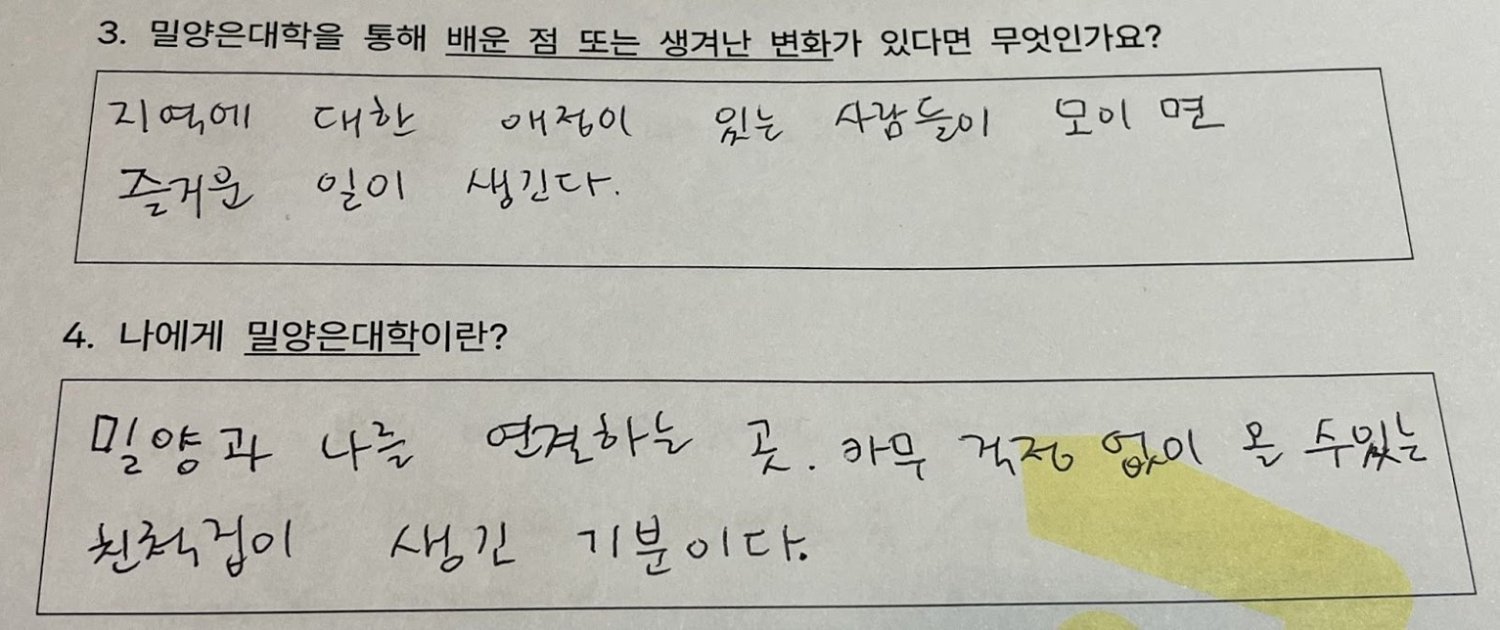 3. 밀양은대학을 통해 배운 점 또는 생겨난 변화가 있다면 무엇인가요?
지역에 대한 애정이 있는 사람들이 모이면
즐거운 일이 생긴다.
4. 나에게 밀양은대학이란?
밀양과 나를 연결하는 곳. 아무 걱정 없이 올 수있는
친척집이 생긴 기분이다.